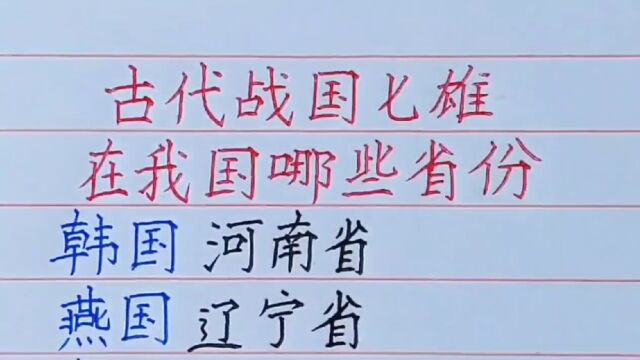 古代战国七雄
在我国哪些省份
韩国 河南省
燕国 辽宁省